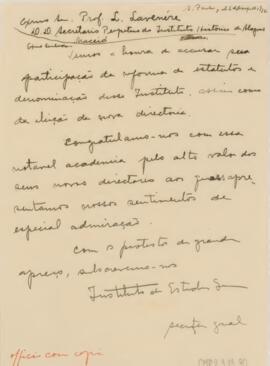 S. Paulo,
Exmo Snr. Prof. L. Lavenère
DD. Secretario Perpetuo do Instituto Historico de Alagoas
Maceió
Temos a honra de accusar sua
participação da reforma de estatutos e
denominação desse Instituto, assim como
da eleição de nova directoria.
Congratulamo-nos com essa
notavel academia pelo alto valor dos
seus novos directores aos quaes apre-
sentamos nossos sentimentos de
especial admiração.
Com os protestos de grande
apreço, subscrevemo-nos
Instituto de Estudos
secretº geral
officio com copia